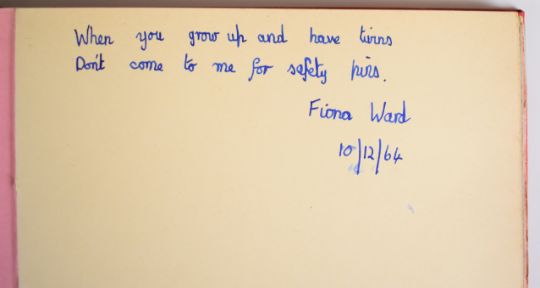 When you grow up and have twins
Don't come to me for safety pins.
Fiona Ward
10/12/64